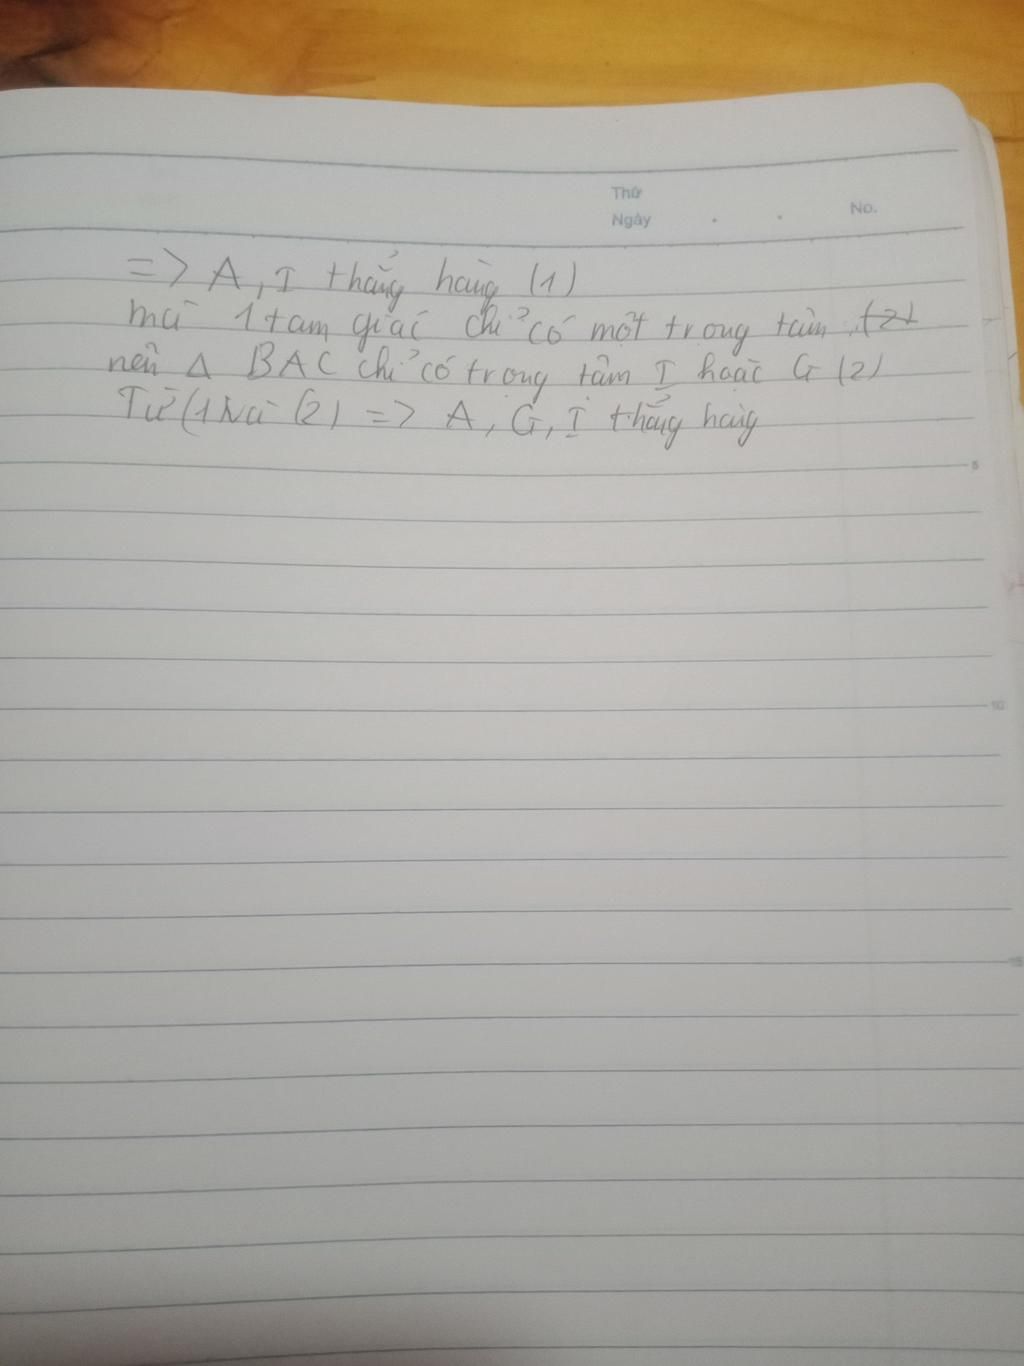 Thứ
Ngày . . No.
=> A, I thẳng hàng (1)
mà 1 tam giác chỉ có một trong tâm (2)
nên Δ BAC chỉ có trọng tâm I hoặc G (2)
Từ (1) và (2) => A, G, I thẳng hàng
5
10
15